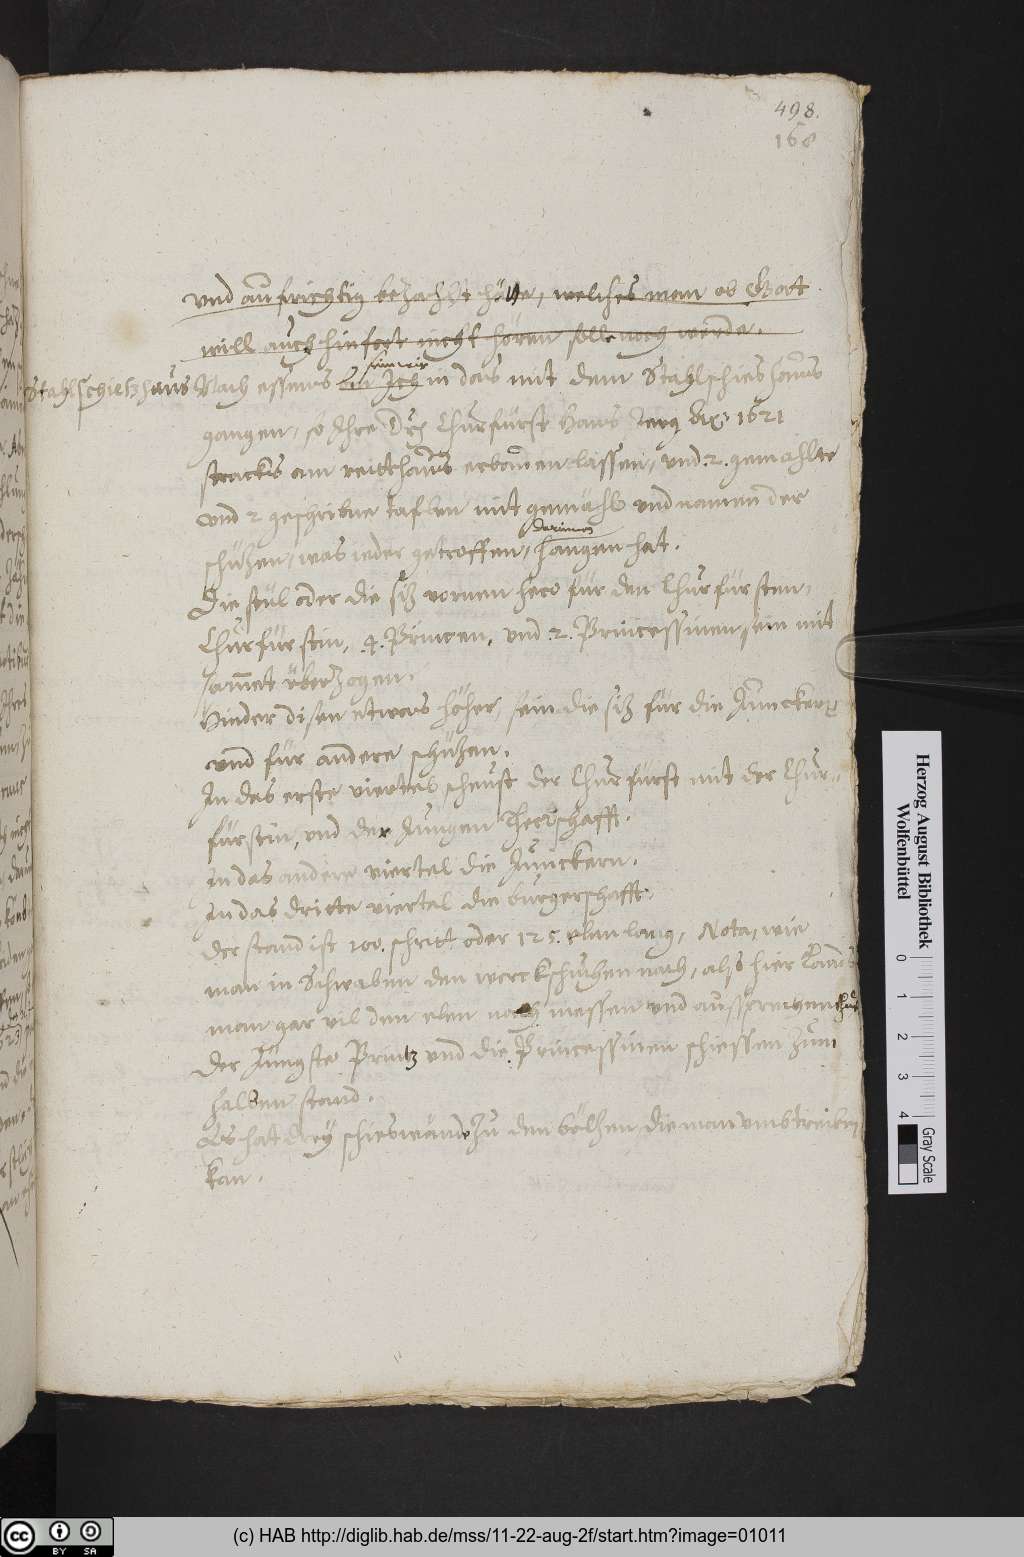 498.
168
vnd aufrichtig bezahlt hette, welches man ob Gott
will auch hinfort nicht hören solle noch werde.
sein wir
Stahlschießhaus
Nach essens bin Jch in das mit dem Stahlschies haus
gangen, so Jhre Churfürst Hans Jerg 1621
stracks am reitthaus erbawen lassen, vnd 2. gemahlte
vnd 2 geschribne taflen mit gemähl vnd namen der
darinnen
schüzen, was ieder getroffen, hangen hat.
Die stül oder die siz vornen hero für den Churfürsten,
Churfürstin, 4. Princen, vnd 2. Princessinen, sein mit
sammet überzogen.
Hinder disen etwas höher, sein die siz für die Junckern
vnd für andere schüzen.
Jn das erste viertel scheust der Churfürst mit der Chur-
fürstin, vnd der Jungen Herrschafft.
Jn das andere viertel die Junckern.
Jn das dritte viertel die burgerschafft.
der stand ist 100. schritt oder 125. elen lang, Nota, wie
man in Schwaben den werckschuhen nach, also hier
man gar vil den elen nach messen vnd aussprechen thut
der Jüngste Printz vnd die Princessinen schiessen zum
halben stand.
Es hat drey schieswände zu den bölzen, die man vmbtreiben
kan.
Herzog August Bibliothek
Wolfenbüttel
0 1 2 3 4
Gray Scale
cc BY SA
(c) HAB http://diglib.hab.de/mss/11-22-aug-2f/start.htm?image=01011